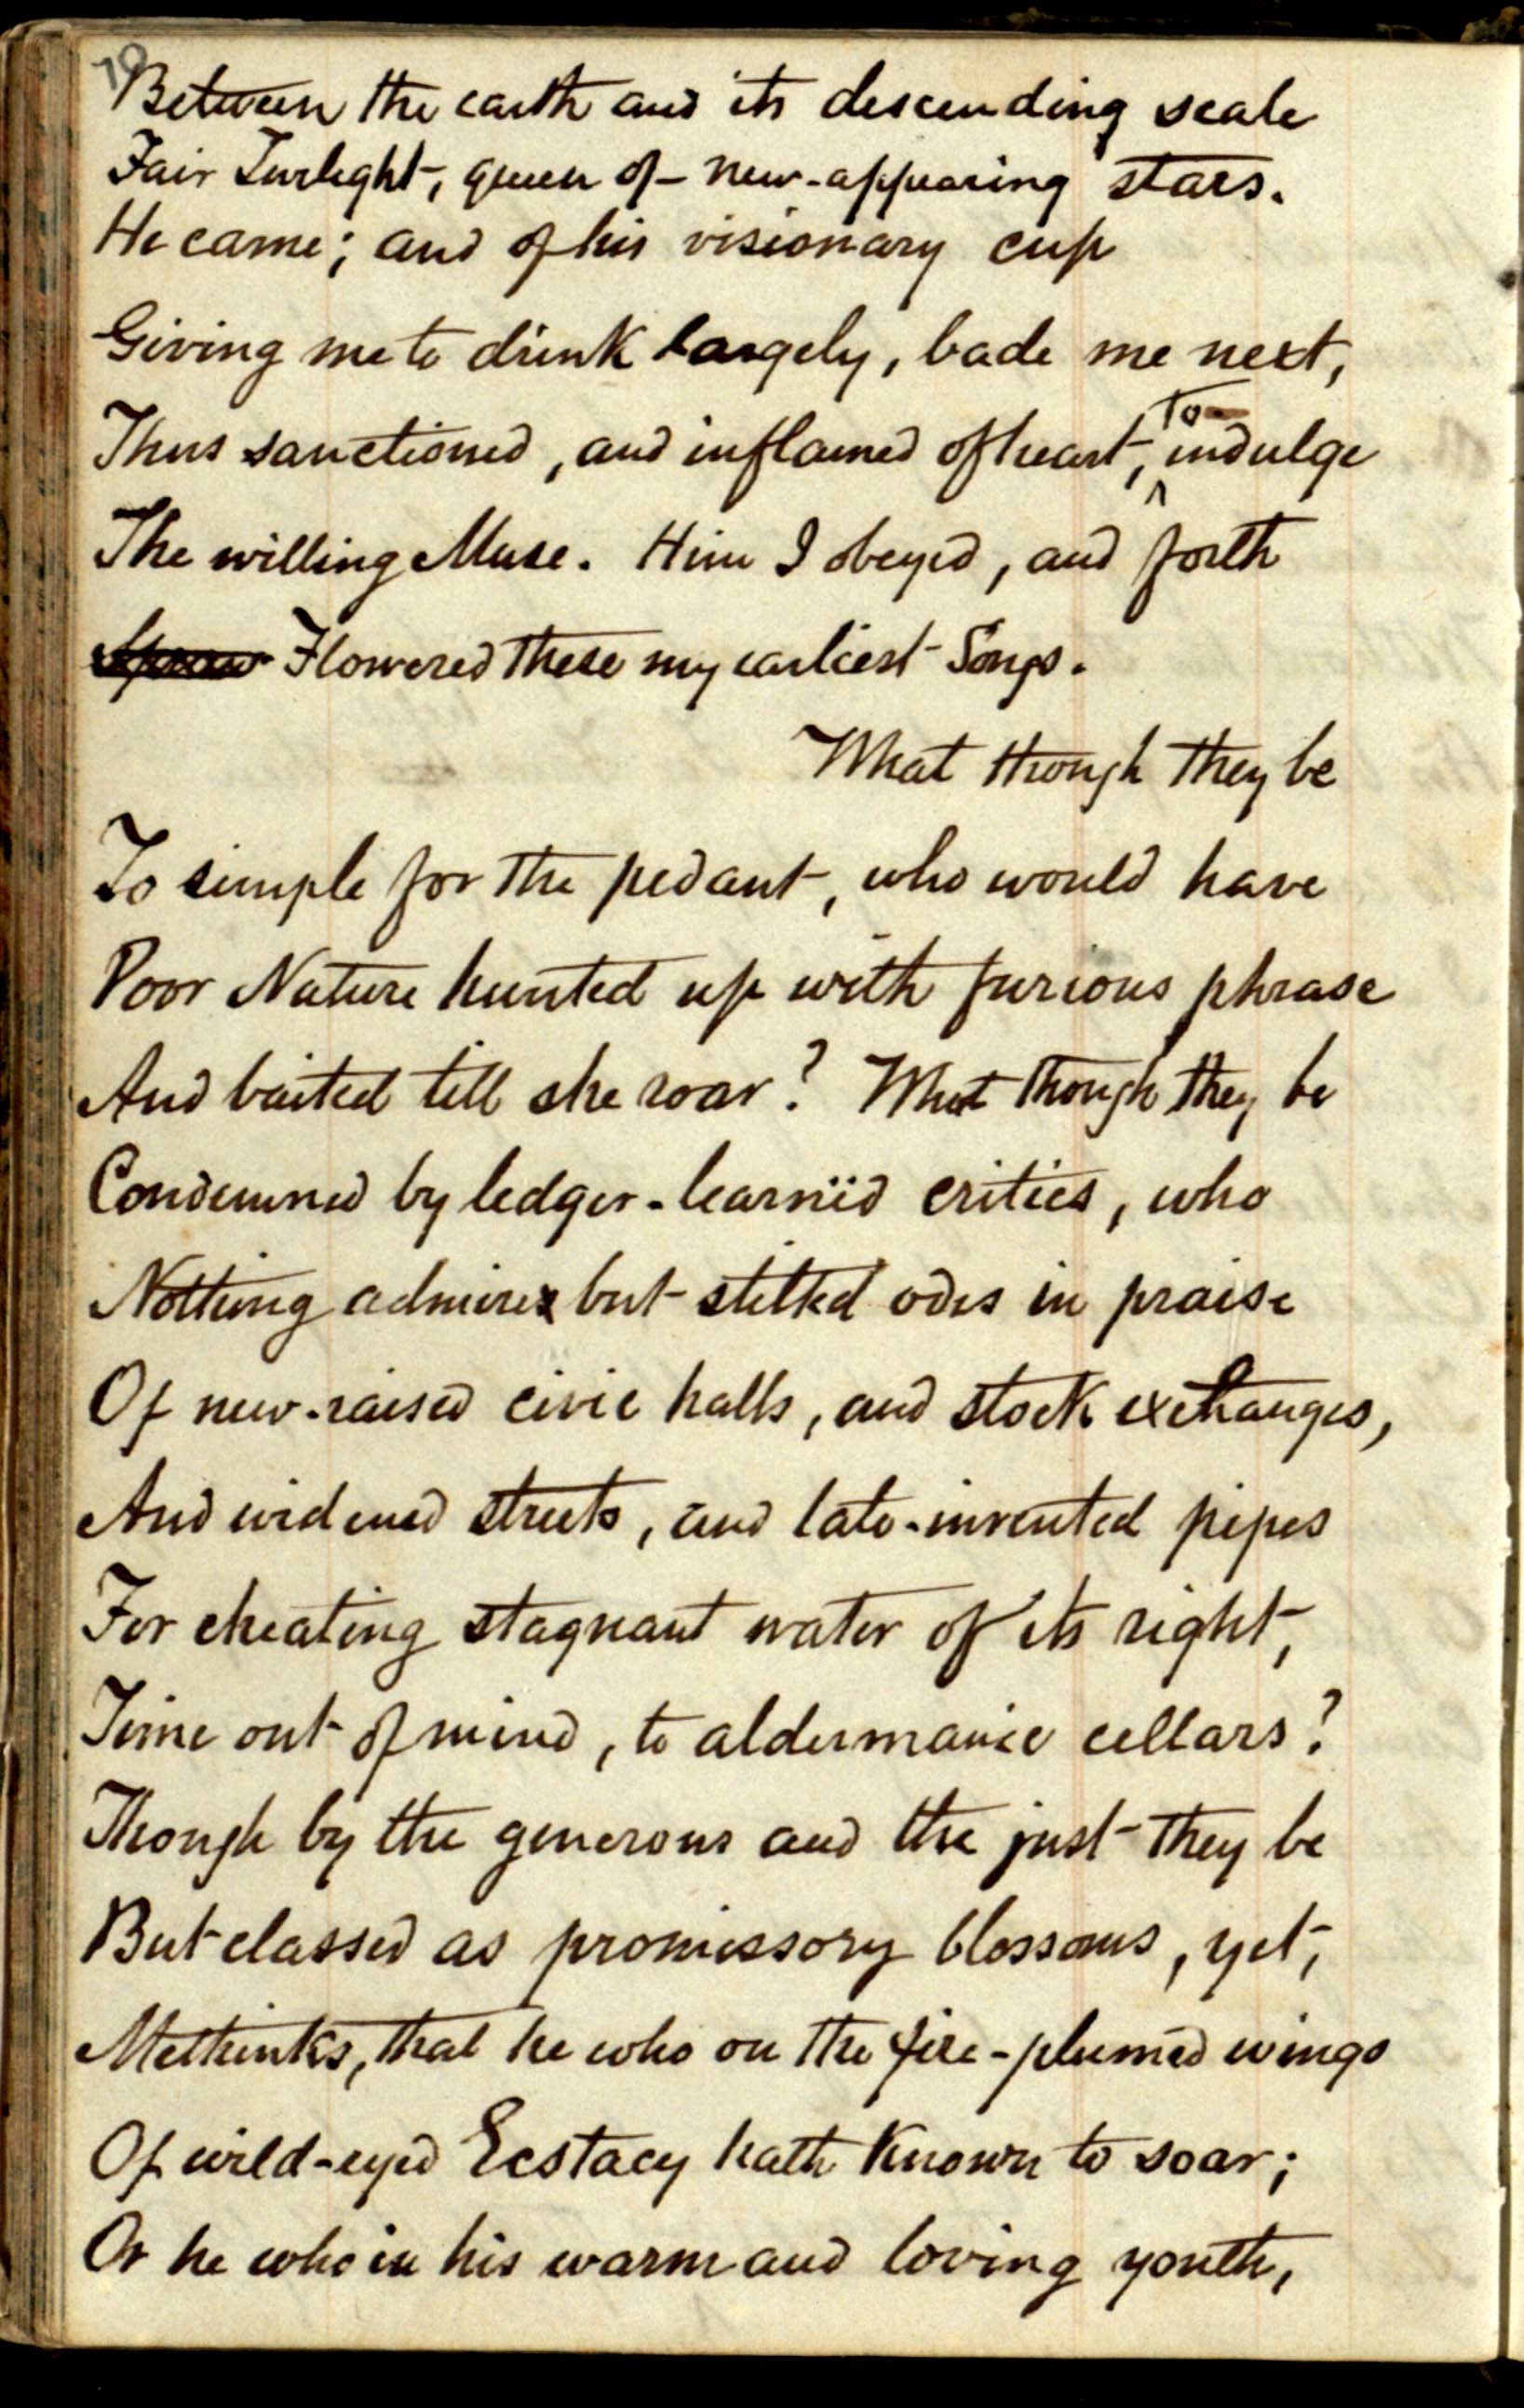 70
Between the earth and its descending scale
Fair Twilight, queen of new-appearing stars.
He came; and of his visionary cup
Giving me to drink largely, bade me next,
To
Thus sanctioned, and inflamed of heart, ^ indulge
The willing Muse. Him I obeyed, and forth
Flowered these my earliest Songs.
What though they be
To simple for the pedant, who would have
Poor Nature hunted up with furious phrase
And baited till she roar? What though they be
Condemned by ledger-learnéd critics, who
Nothing admire but stilted odes in praise
Of new-raised civic halls, and stock exchanges,
And widened streets, and late-invented pipes
For cheating stagnant water of its right,
Time out of mind, to aldermanic cellars?
Though by the generous and the just they be
But classed as promissory blossoms, yet,
Methinks, that he who on the fire-plumed wings
Of wild-eyed Ecstacy hath known to soar;
Or he who in his warm and loving youth,